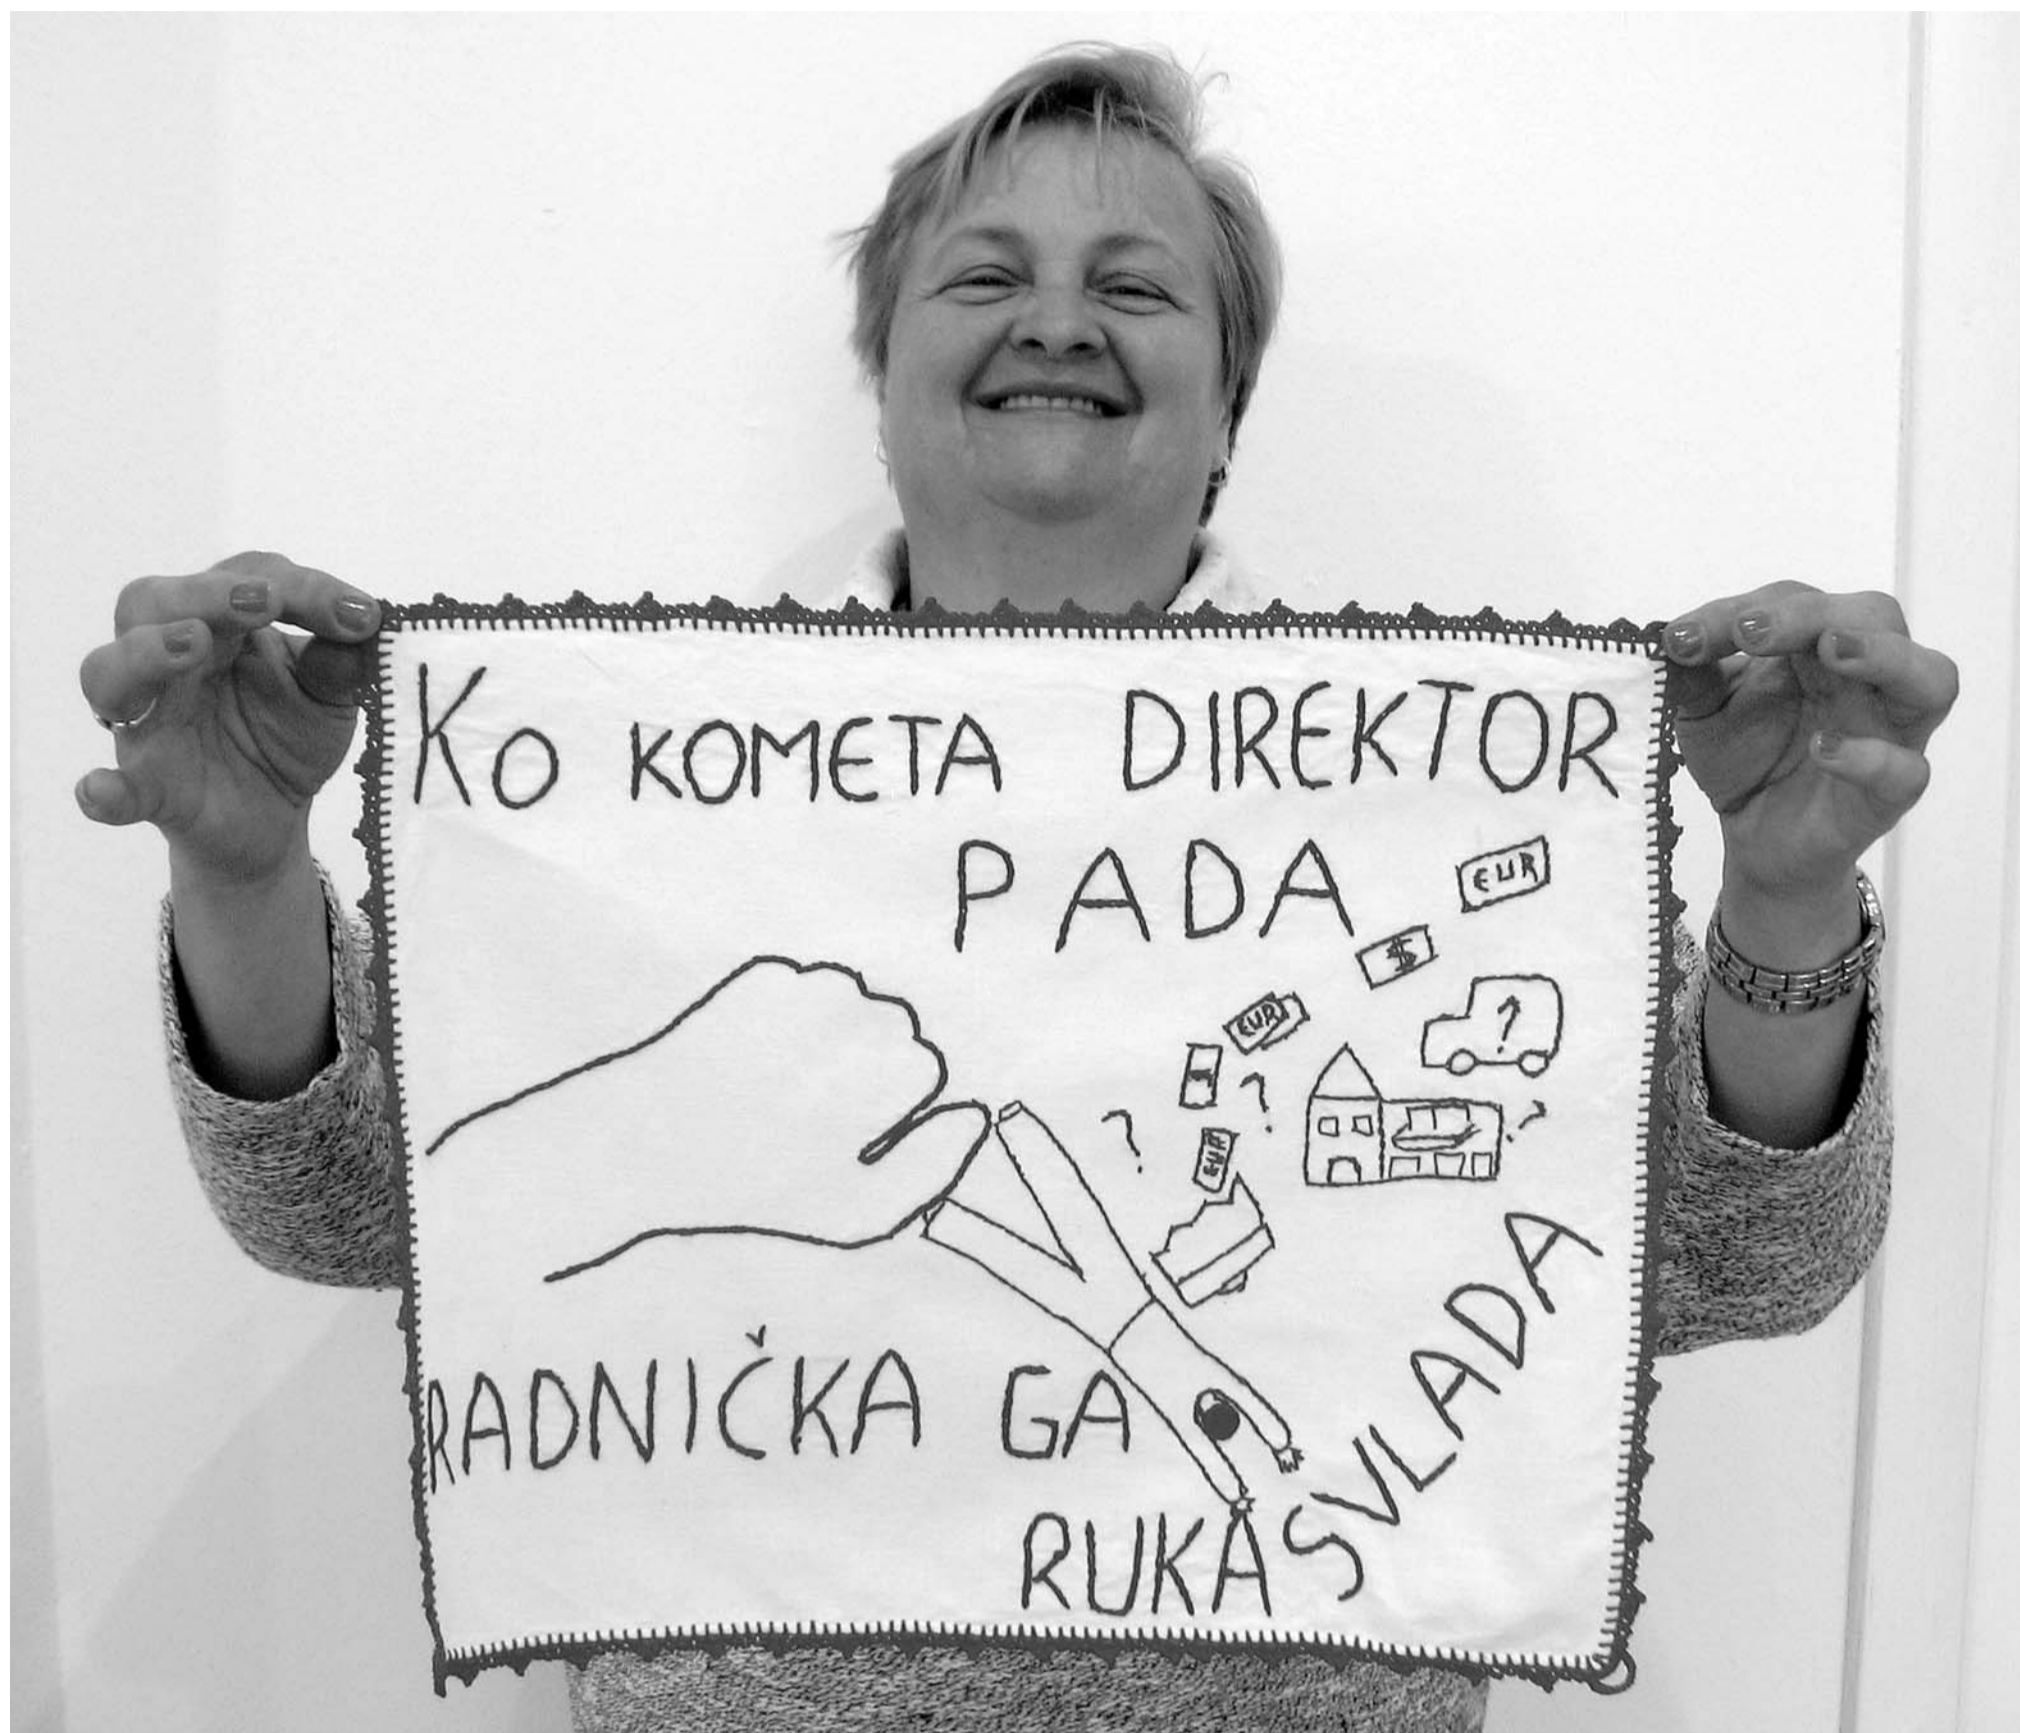 KO KOMETA DIREKTOR
PADA
EUR
$
EUR
?
?
?
EUR
?
RADNIČKA GA
RUKA SVLADA